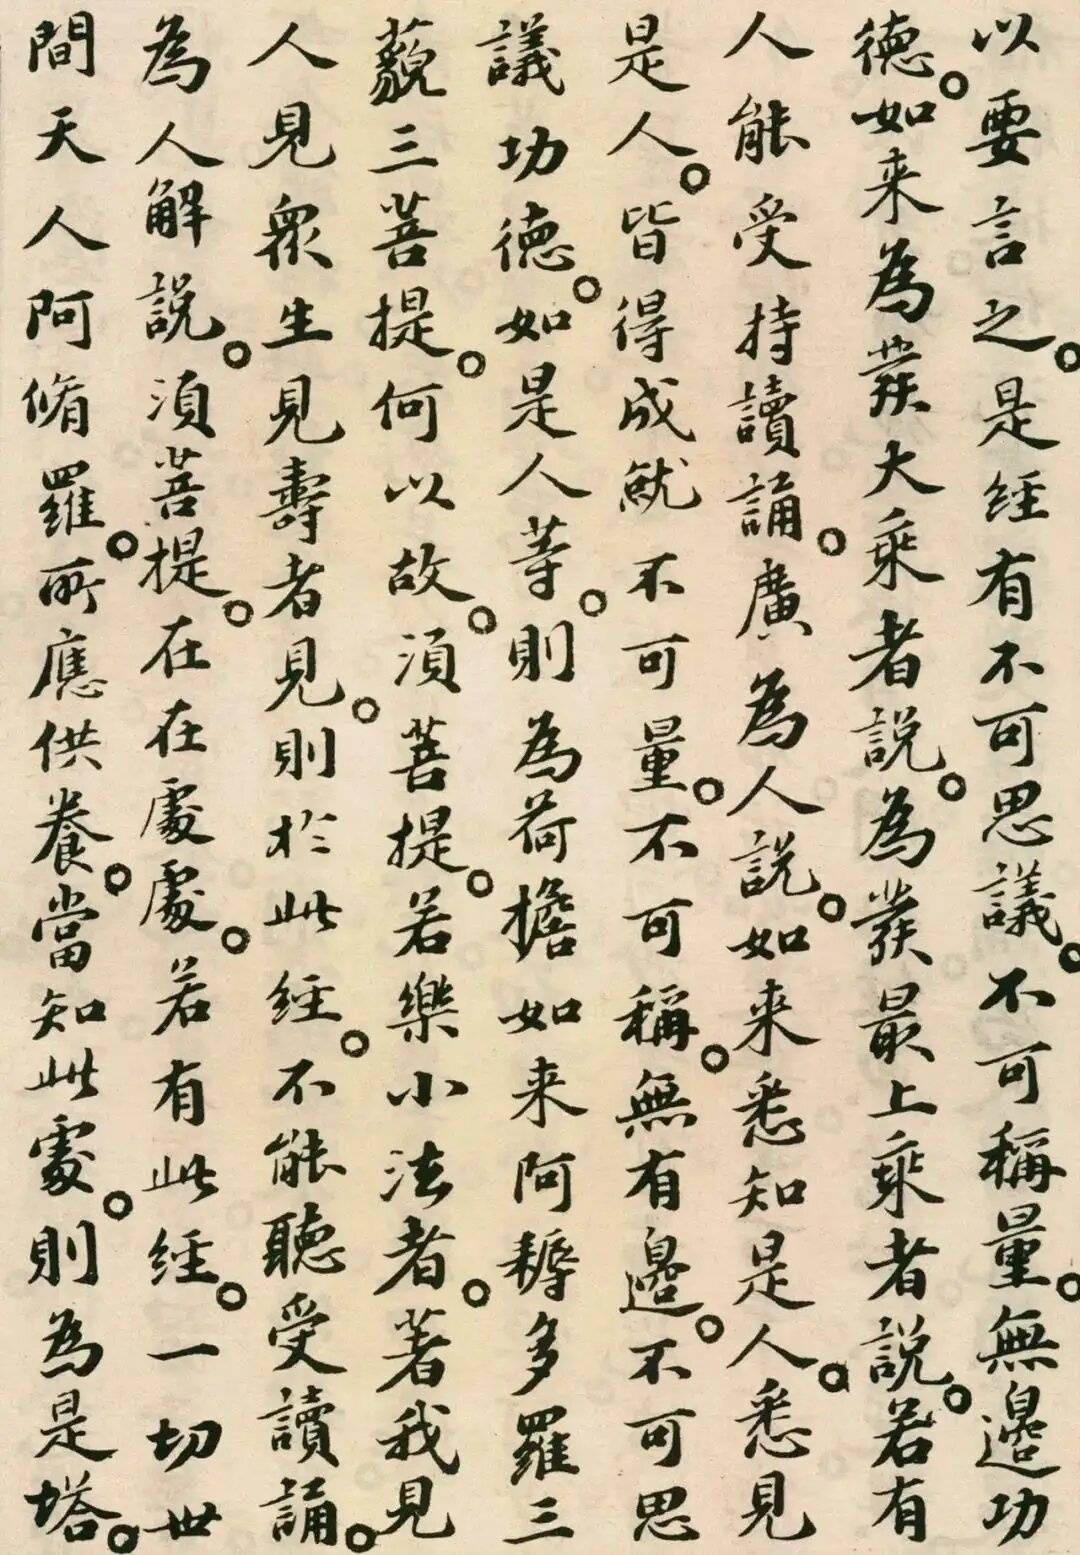 以要言之。是經有不可思議。不可稱量。無邊功
德。如来為發大乘者說。為發最上乘者說。若有
人能受持讀誦。廣為人說。如来悉知是人。悉見
是人。皆得成就不可量。不可稱。無有邊。不可思
議功德。如是人等。則為荷擔如来阿耨多羅三
藐三菩提。何以故。須菩提。若樂小法者。著我見
人見衆生見壽者見。則於此經。不能聽受讀誦。
為人解說。須菩提。在在處處。若有此經。一切世
間天人阿脩羅。所應供養。當知此處。則為是塔。